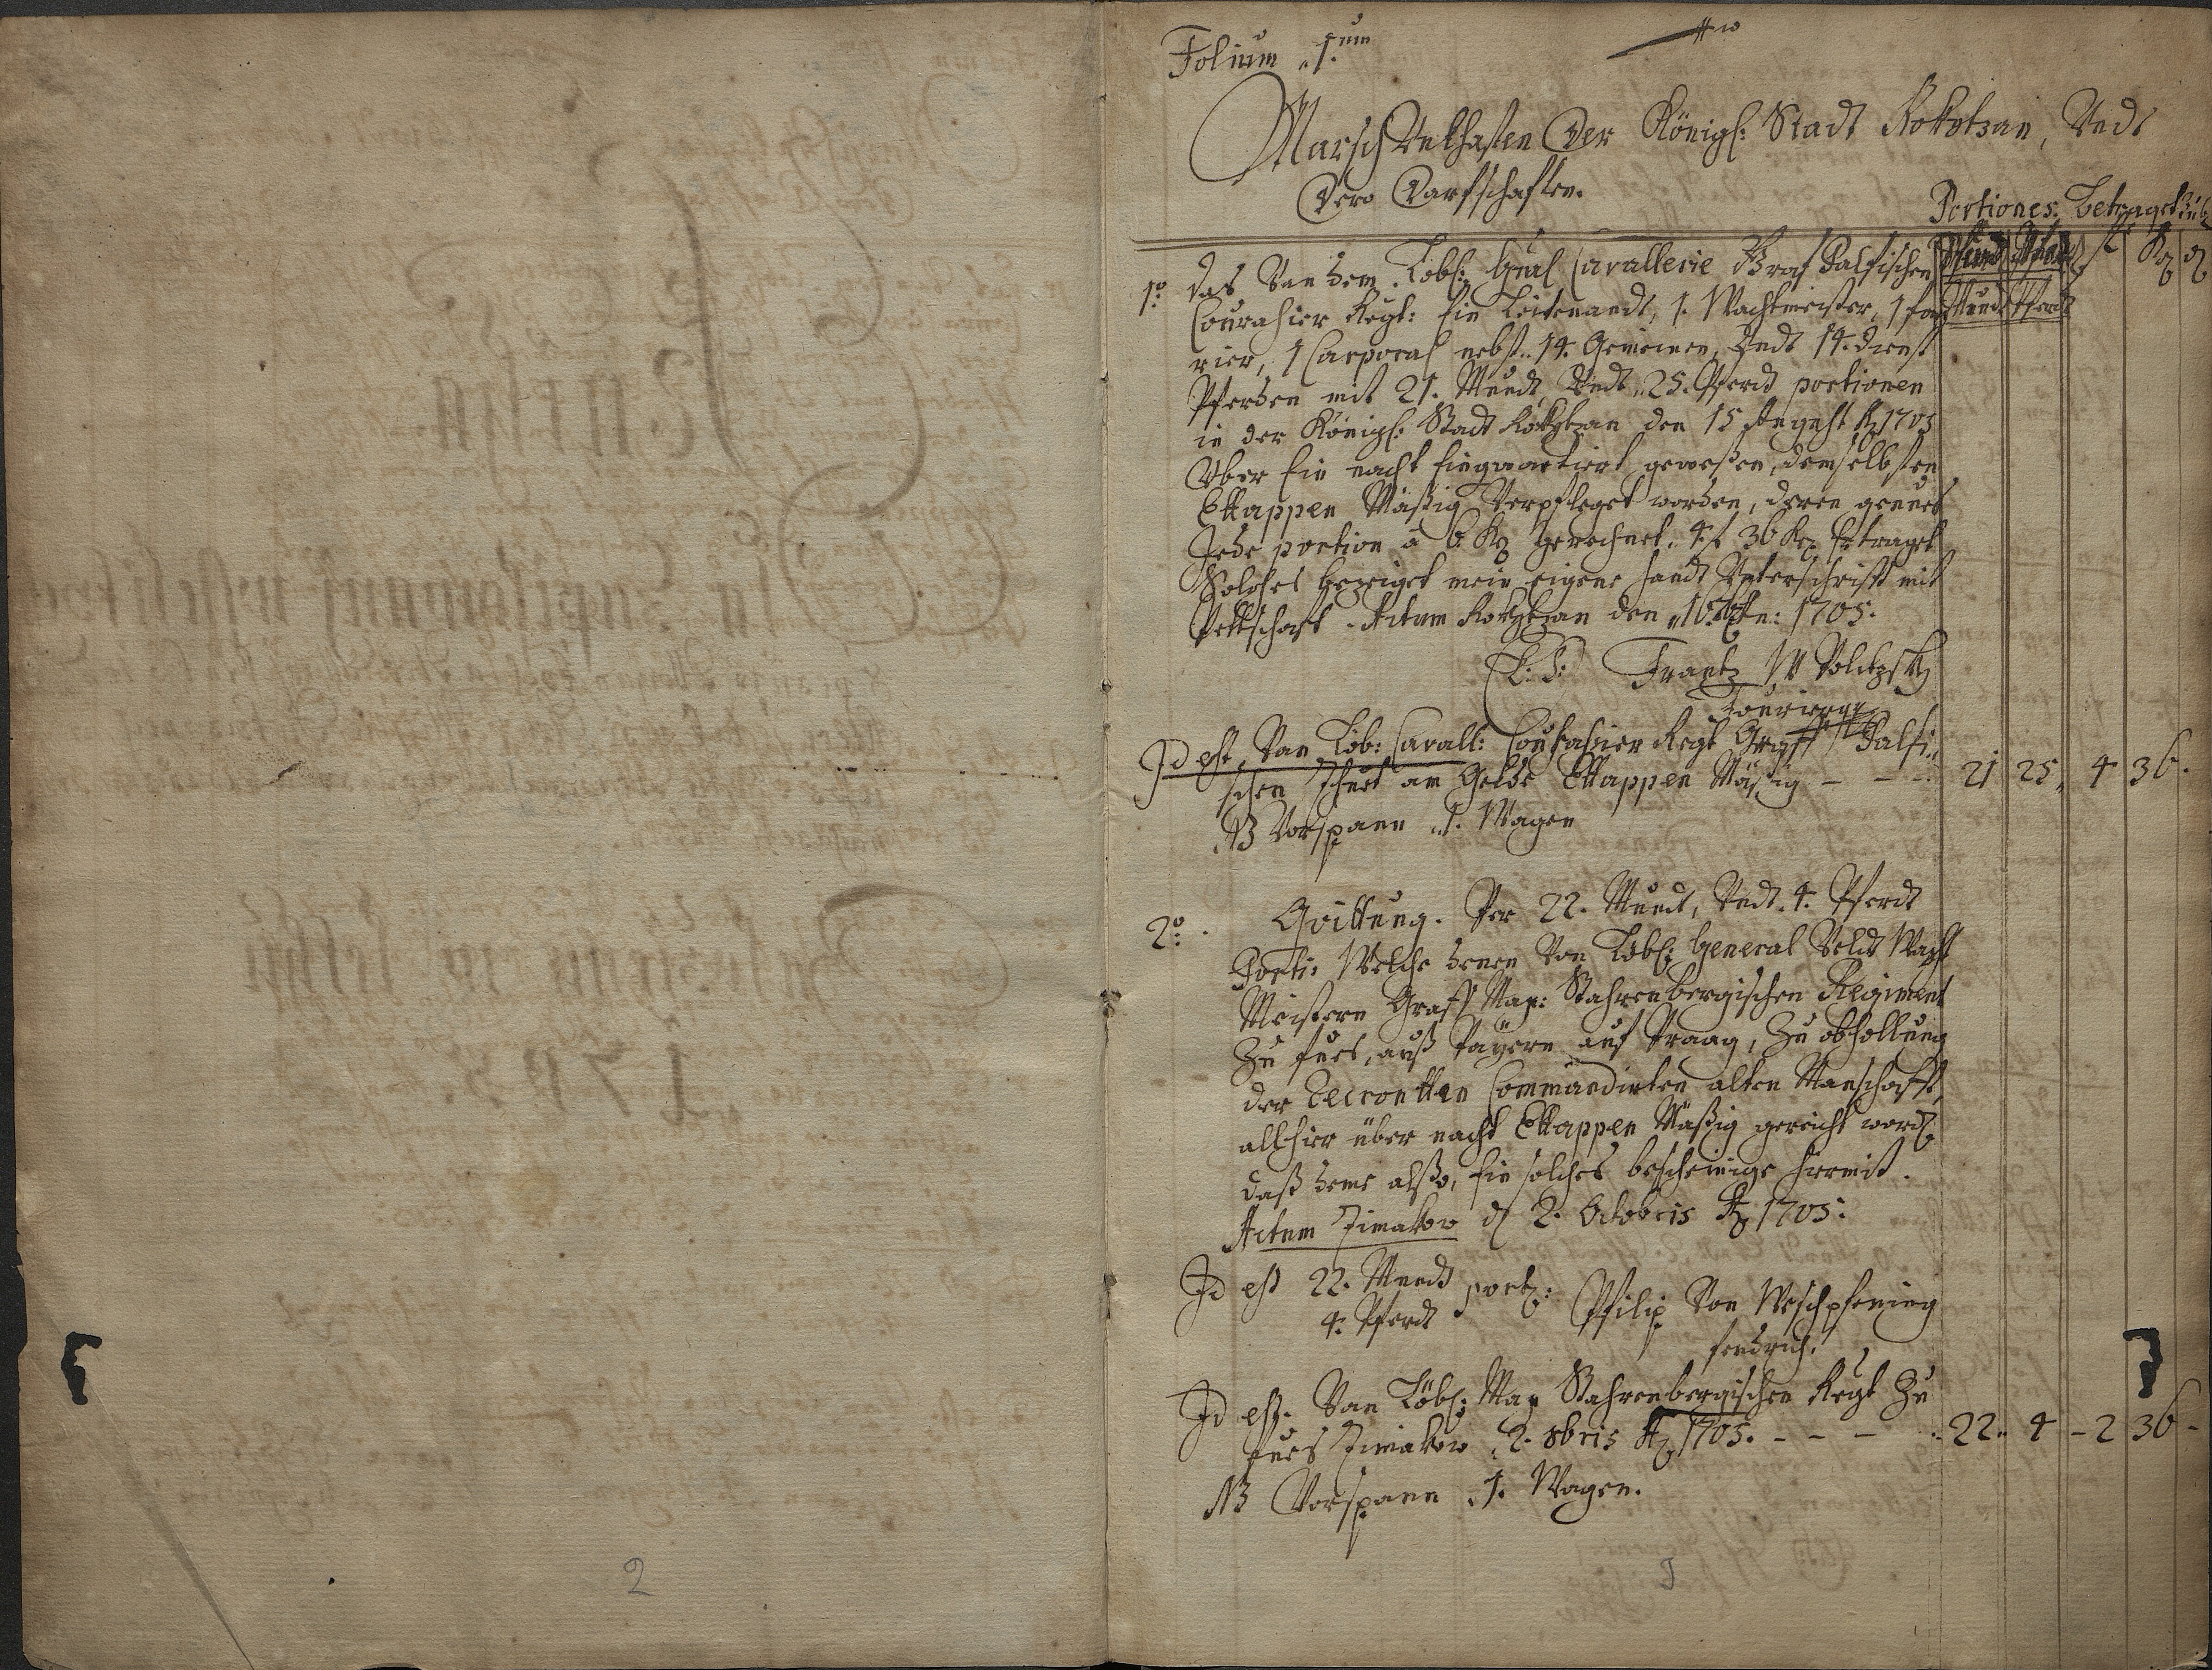 Folium 1.um
Marsch Unkhosten Der Königl: Stadt Rokytzan, Undt
Dero Dorfschaften.
Portiones. Betraget
Mundt Pferdt f Kr
1o Das Von dem Löbl: Gnral Cavallerie Graf Palfischen
Courahsier Regt: Ein Leitenandt, 1. Wachtmeister, 1 fou
rier, 1 Carporal nebst 14. Gemeinen, Undt 14. dienst
Pferden mit 21. Mundt, Undt 25. Pferdt portionen
in der Königl: Stadt Rokytzan den 15 August Ao 1705
Über Ein nacht Einquartiert geweßen, demselbsten
Ettappen Mäßig Verpfleget worden, deren
Jede portion à 6 Kr gerechnet 4 f 36 Kr Ertraget
Solches bezeiget mein eigene handt Unterschrifft mit
Pettschaft. Actum Rokytzan den 16. 1705.
(L: S:) Frantz
Fourier
Id est Von Löb: Cavall: Courahsier Regt Graff Palfi
schen an Gelde Ettappen Mäßig - - - 21 25 4 36.
NB Vorspann 1. Wagen
2o. Quittung. Per 22. Mundt, Undt 4. Pferdt
Porti: Welche denen Von Löbl: General Veldt Wacht
Meistern Graff Max: Stahrenbergischen Regiment
Zu fues, auß Bayern auf Praag, Zu abhollung
der Recroutten Commandirten alten Manschafft,
allhier über nacht Ettappen Mäßig gereicht word:
daß deme alßo, Ein solches bescheinige hiermit.
Actum d 2. Octobris Ao 1705.
Id est 22. Mundt
4. Pferdt port:
Philip Von
fendrich.
Id est. Von Löbl: Max Stahrenbergischen Regt Zu
fues 2. 8bris Ao 1705. - - - 22. 4 - 2 36 -
NB Vorspann 1. Wagen.
2
3